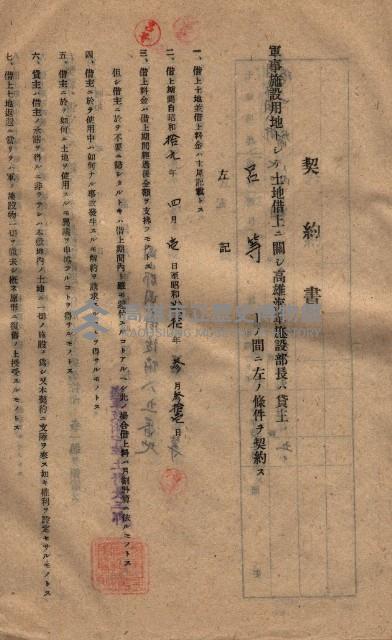 契約書
軍事施設用地トシテ土地借上ニ關シ高雄海軍施設部長ハ貸主
呂等トノ間ニ左ノ條件ヲ契約ス
左記
一、借上土地並借上料金ハ末尾記載トス
二、借上期間自昭和拾九年四月壱日至昭和貳拾年參月參拾壱日
三、借上料金ハ借上期間經過後金額ヲ支拂フモノトス
但シ借主ニ於テ不要ニ歸シタルトキハ借上期間内ト雖モ返還スルコトアルベシ此ノ場合借上料ハ月割計算ニ依ルモノトス
四、借主ニ於テ使用中ハ如何ナル事故發生スルモ解約ヲ請求スルコトヲ得サルモノトス
五、借主ニ於テ如何ニ土地ヲ使用スルモ異議ヲ申出ヅルコトヲ得サルモノトス
六、貸主ハ借主ノ承諾ヲ得ルニ非ラザレバ本敷地内ノ土地ニ一切ノ施設ヲ爲シ又本契約ニ支障ヲ來ス如キ權利ヲ設定セサルモノトス
七、借上土地返還ニ當リテハ軍ノ施設物一切ヲ撤去シ概ネ原形ニ復舊ノ上授受スルモノトス
高雄市立歷史博物館